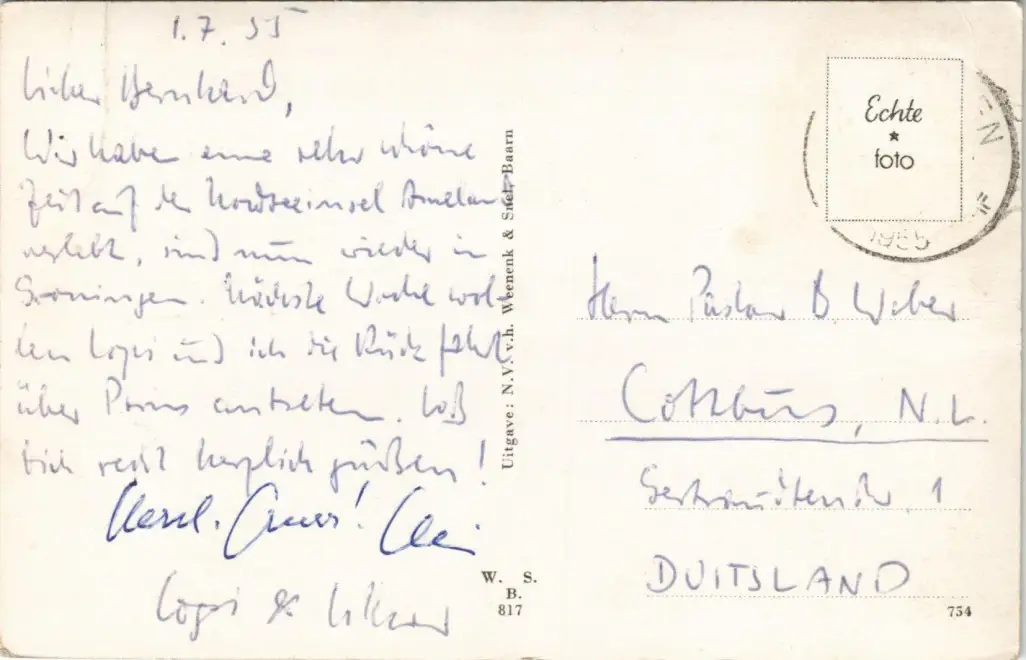 1.7.55
Lieber Bernhard,
Wir haben eine sehr schöne
Zeit auf der Nordseeinsel Ameland
verlebt, sind nun wieder in
Groningen. Nächste Woche wol-
len und ich die Rückfahrt
über antreten. Laß
Dich recht herzlich grüßen!
Herzl.
&
Uitgave: N.V. v.h. Weenenk & Snel, Baarn
W. S.
B.
817
Echte
foto
EN
1955
Herrn Pastor B. Weber
Cottbus, N.L.
Gertraudtenstr. 1
DUITSLAND
754